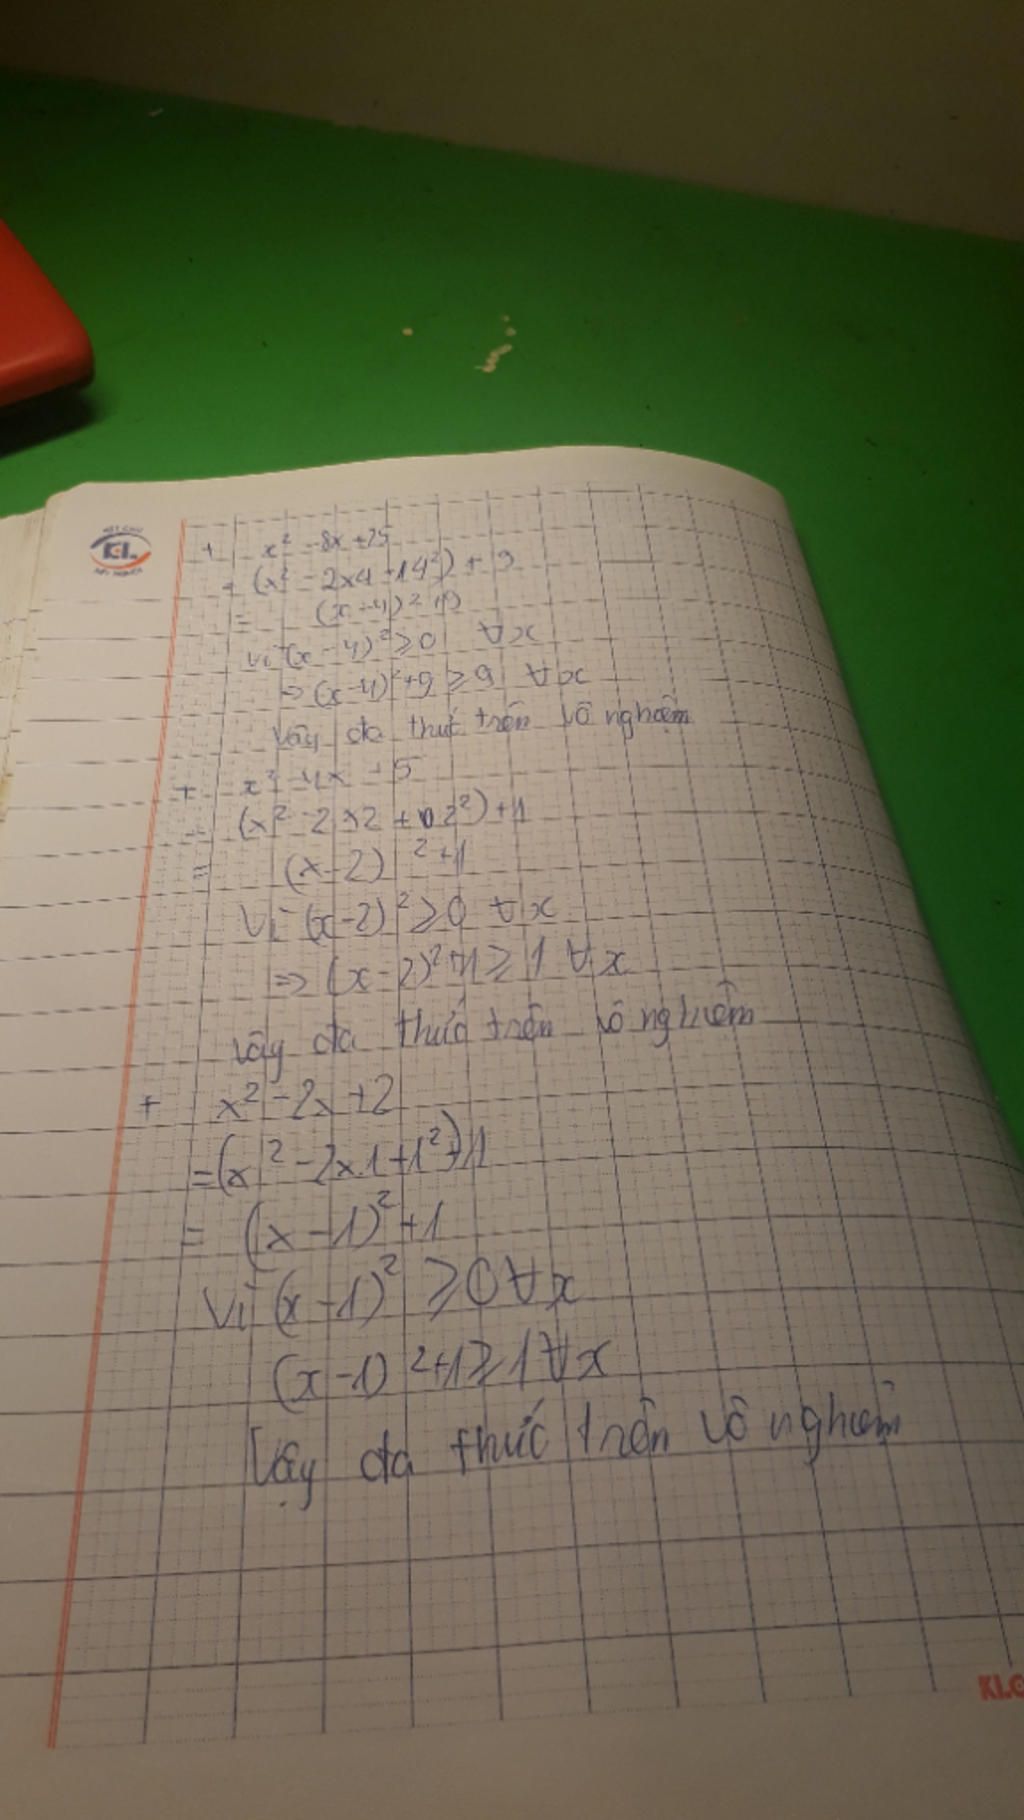 KLONG
+ x² - 8x + 25
= (x² - 2x4 + 14²) + 9
= (x - 4)² + 9
Vì (x - 4)² ≥ 0 ∀x
=> (x - 4)² + 9 ≥ 9 ∀x
Vậy đa thức trên vô nghiệm
+ x² - 4x + 5
= (x² - 2x2 + 2²) + 1
= (x - 2)² + 1
Vì (x - 2)² ≥ 0 ∀x
=> (x - 2)² + 1 ≥ 1 ∀x
Vậy đa thức trên vô nghiệm
+ x² - 2x + 2
= (x² - 2x.1 + 1²) + 1
= (x - 1)² + 1
Vì (x - 1)² ≥ 0 ∀x
(x - 1)² + 1 ≥ 1 ∀x
Vậy đa thức trên vô nghiệm